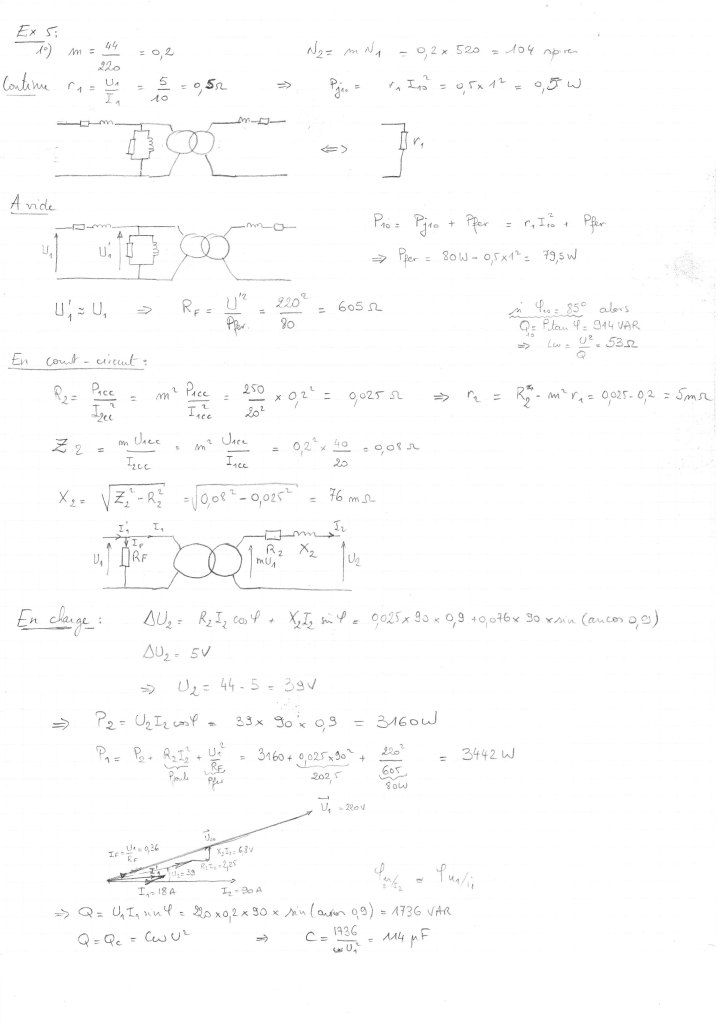 Ex 5:
1°) m = 44/220 = 0,2    N2 = m N1 = 0,2 x 520 = 104 spires
Continu r1 = U1/I1 = 5/10 = 0,5Ω ⇒ Pj10 = r1 I10² = 0,5 x 1² = 0,5 W
⇔ r1
A vide
U1 U1'
P10 = Pj10 + Pfer = r1 I10² + Pfer
⇒ Pfer = 80W - 0,5x1² = 79,5W
U1' ≈ U1 ⇒ RF = U'²/Pfer = 220²/80 = 605 Ω
si φ10 = 85° alors
Q10 = P tan φ = 914 VAR
⇒ Lω = U²/Q = 53Ω
En court-circuit :
R2 = P1cc/I2cc² = m² P1cc/I1cc² = 250/20² x 0,2² = 0,025 Ω ⇒ r2 = R2 - m² r1 = 0,025 - 0,2 = 5mΩ
Z2 = m U1cc/I2cc = m² U1cc/I1cc = 0,2² x 40/20 = 0,08 Ω
X2 = √(Z2² - R2²) = √(0,08² - 0,025²) = 76 mΩ
I1' I1 I2
U1 IF RF mU1 R2 X2 U2
En charge : ΔU2 = R2 I2 cos φ + X2 I2 sin φ = 0,025 x 90 x 0,9 + 0,076 x 90 x sin (arcos 0,9)
ΔU2 = 5V
⇒ U2 = 44 - 5 = 39V
⇒ P2 = U2 I2 cos φ = 39 x 90 x 0,9 = 3160W
P1 = P2 + R2 I2² + U1²/RF = 3160 + 0,025 x 90² + 220²/605 = 3442 W
Pjoule Pfer 202,5 80W
U1 = 220V
IF = U1/RF = 0,36 U20 X2 I2 = 6,8V
U2 = 39 R2 I2 = 2,25
I1 = 18 A I2 = 90 A
φ u2/i2 = φ u1/i1
⇒ Q = U1 I1 sin φ = 220 x 0,2 x 90 x sin (arcos 0,9) = 1736 VAR
Q = Qc = CωU² ⇒ C = 1736/ωU1² = 114 µF